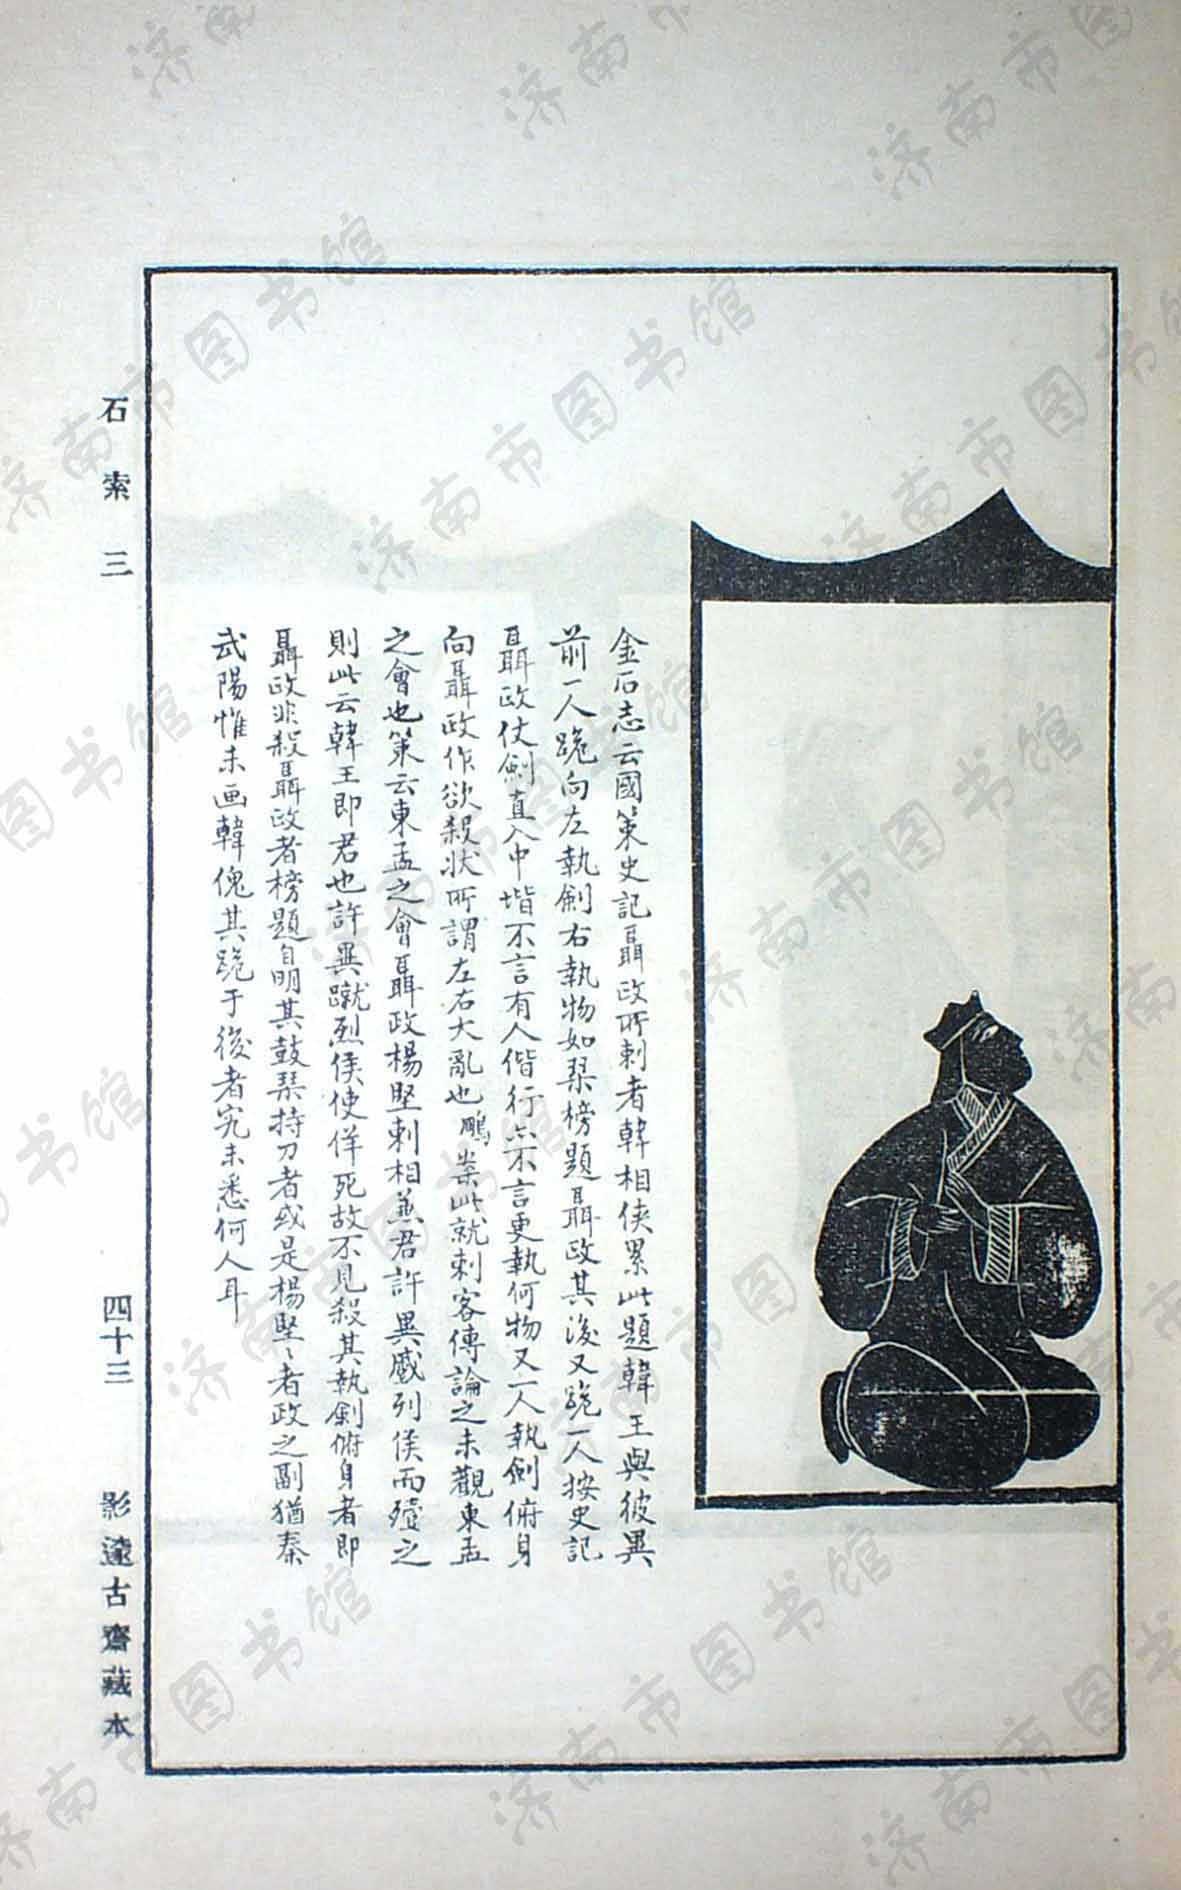 金石志云國策史記聶政所刺者韓相俠累此題韓王與彼異
前一人跪向左執劍右執物如琴榜題聶政其後又跪一人按史記
聶政仗劍直入中堦不言有人偕行亦不言更執何物又一人執劍俯身
向聶政作欲殺狀所謂左右大亂也鵬案此就刺客傳論之未觀東孟
之會也策云東孟之會聶政楊堅刺相兼君許異蹙列侯而殪之
則此云韓王即君也許異蹴烈侯使佯死故不見殺其執劍俯身者即
聶政非殺聶政者榜題自明其鼓琹持刀者或是楊堅〻者政之副猶秦
武陽惟未画韓傀其跪于後者究未悉何人耳
石索三
四十三
影遠古齋藏本
济南市图书馆